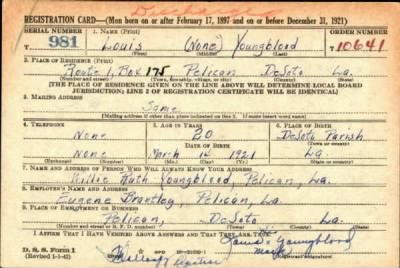 REGISTRATION CARD—(Men born on or after February 17, 1897 and on or before December 31, 1921)
SERIAL NUMBER 1. NAME (Print) ORDER NUMBER
981 Louis (None) Youngblood T10641
(First) (Middle) (Last)
2. PLACE OF RESIDENCE (Print)
Route Box 175 Pelican DeSoto La.
(Number and street) (Town, township, village, or city) (County) (State)
[THE PLACE OF RESIDENCE GIVEN ON THE LINE ABOVE WILL DETERMINE LOCAL BOARD
JURISDICTION; LINE 2 OF REGISTRATION CERTIFICATE WILL BE IDENTICAL]
3. MAILING ADDRESS
Same
[Mailing address if other than place indicated on line 2. If same insert word same]
4. TELEPHONE 5. AGE IN YEARS 6. PLACE OF BIRTH
None 20 DeSoto Parish
DATE OF BIRTH (Town or county)
None March 14 1921 La.
(Exchange) (Number) (Mo.) (Day) (Yr.) (State or country)
7. NAME AND ADDRESS OF PERSON WHO WILL ALWAYS KNOW YOUR ADDRESS
Willie Ruth Youngblood, Pelican, La.
8. EMPLOYER'S NAME AND ADDRESS
Eugene Brantley, Pelican, La.
9. PLACE OF EMPLOYMENT OR BUSINESS
Pelican, DeSoto La.
(Number and street or R. F. D. number) (Town) (County) (State)
I AFFIRM THAT I HAVE VERIFIED ABOVE ANSWERS AND THAT THEY ARE TRUE.
D. S. S. Form 1
(Revised 1-1-42) Youngblood
mark